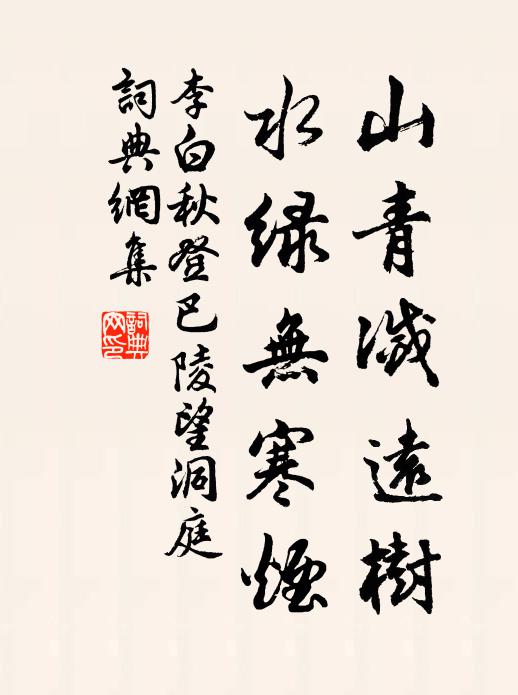 山青滅遠樹
水綠無寒煙
李白秋登巴陵望洞庭
詞典網集
詞典
网印